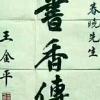 春晓先生
書香傳
王金平